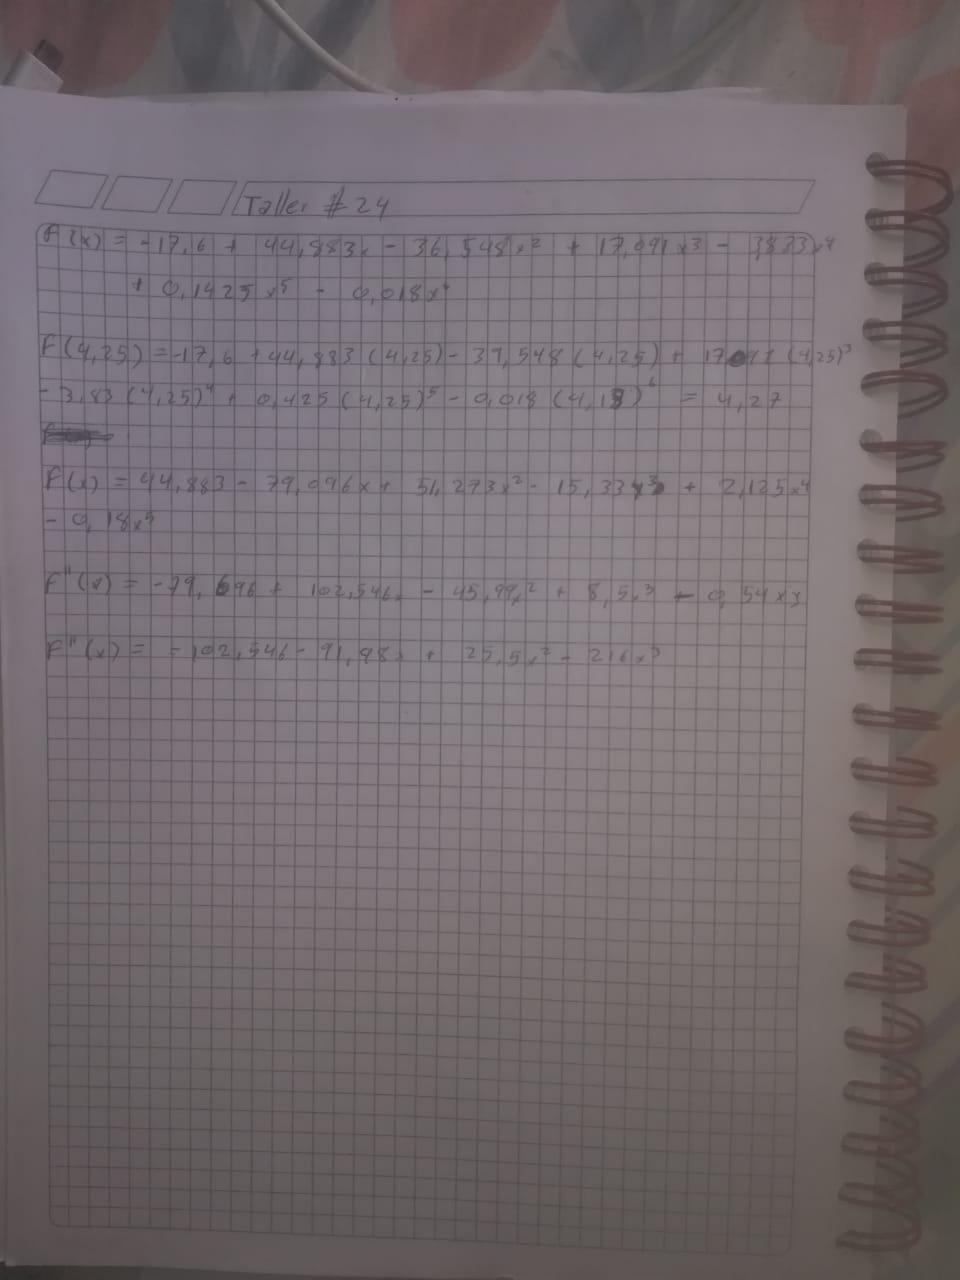 Taller # 24
F(x) = -17,6 + 44,883x - 36,548x² + 17,091x3 - 3,833x⁴
+ 0,1425x⁵ - 0,018x⁶
F(4,25) = -17,6 + 44,883 (4,25) - 39,548 (4,25) + 17,091 (4,25)³
- 3,83 (4,25)⁴ + 0,425 (4,25)⁵ - 0,018 (4,18)⁶ = 4,27
F(x) = 44,883 - 79,096x + 51,273x² - 15,33x³ + 2,125x⁴
- 0,18x⁵
F"(x) = -79,696 + 102,546x - 45,99x² + 8,5x³ - 0,54x3
F"(x) = -102,546 - 91,98x + 25,5x² - 216x³